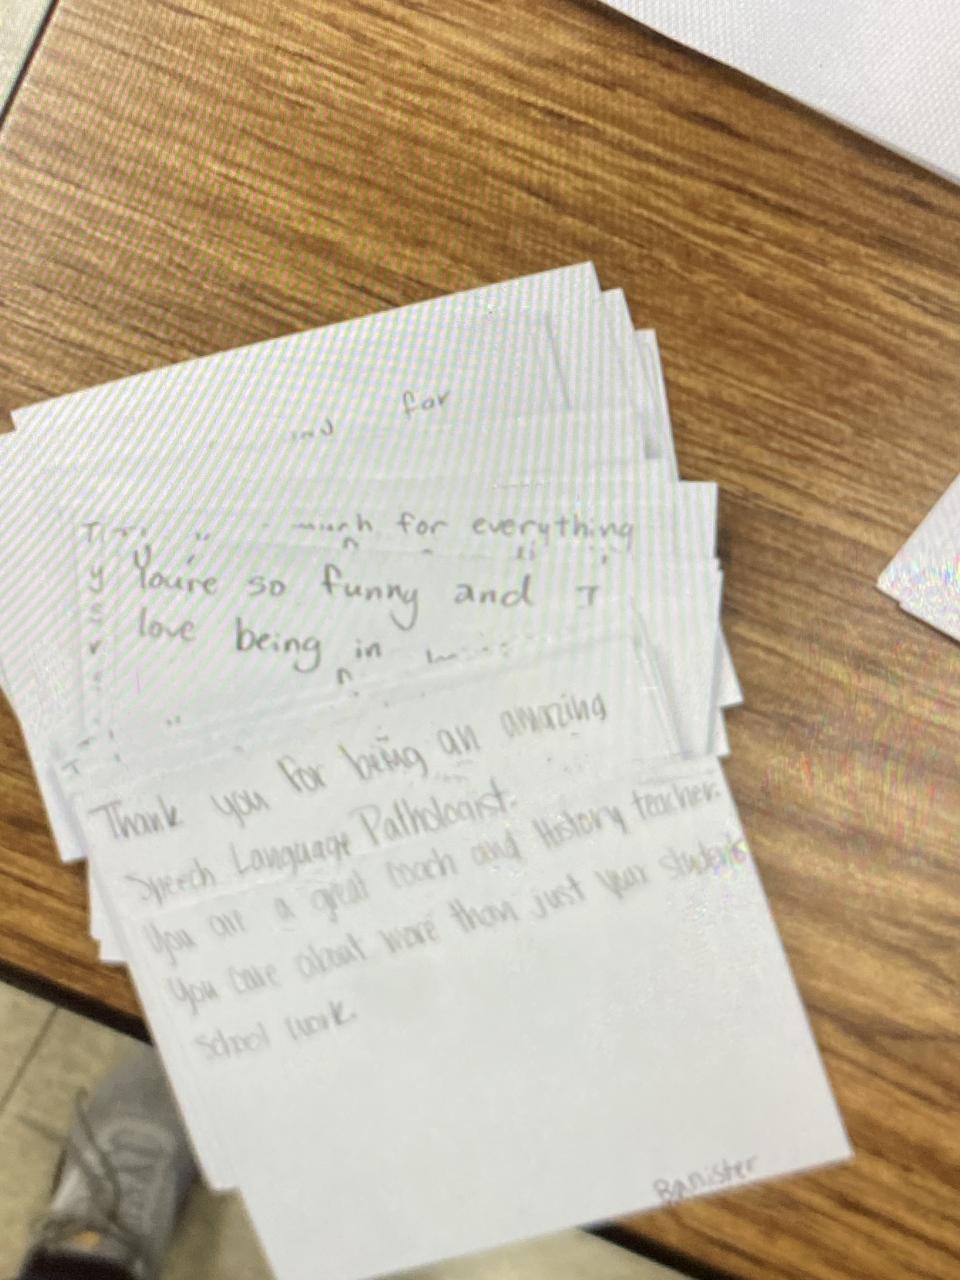 for
much for everything
You're so funny and I
love being in
Thank you for being an amazing
Speech Language Pathologist.
You are a great coach and History teacher.
You care about more than just your students
school work.
Banister